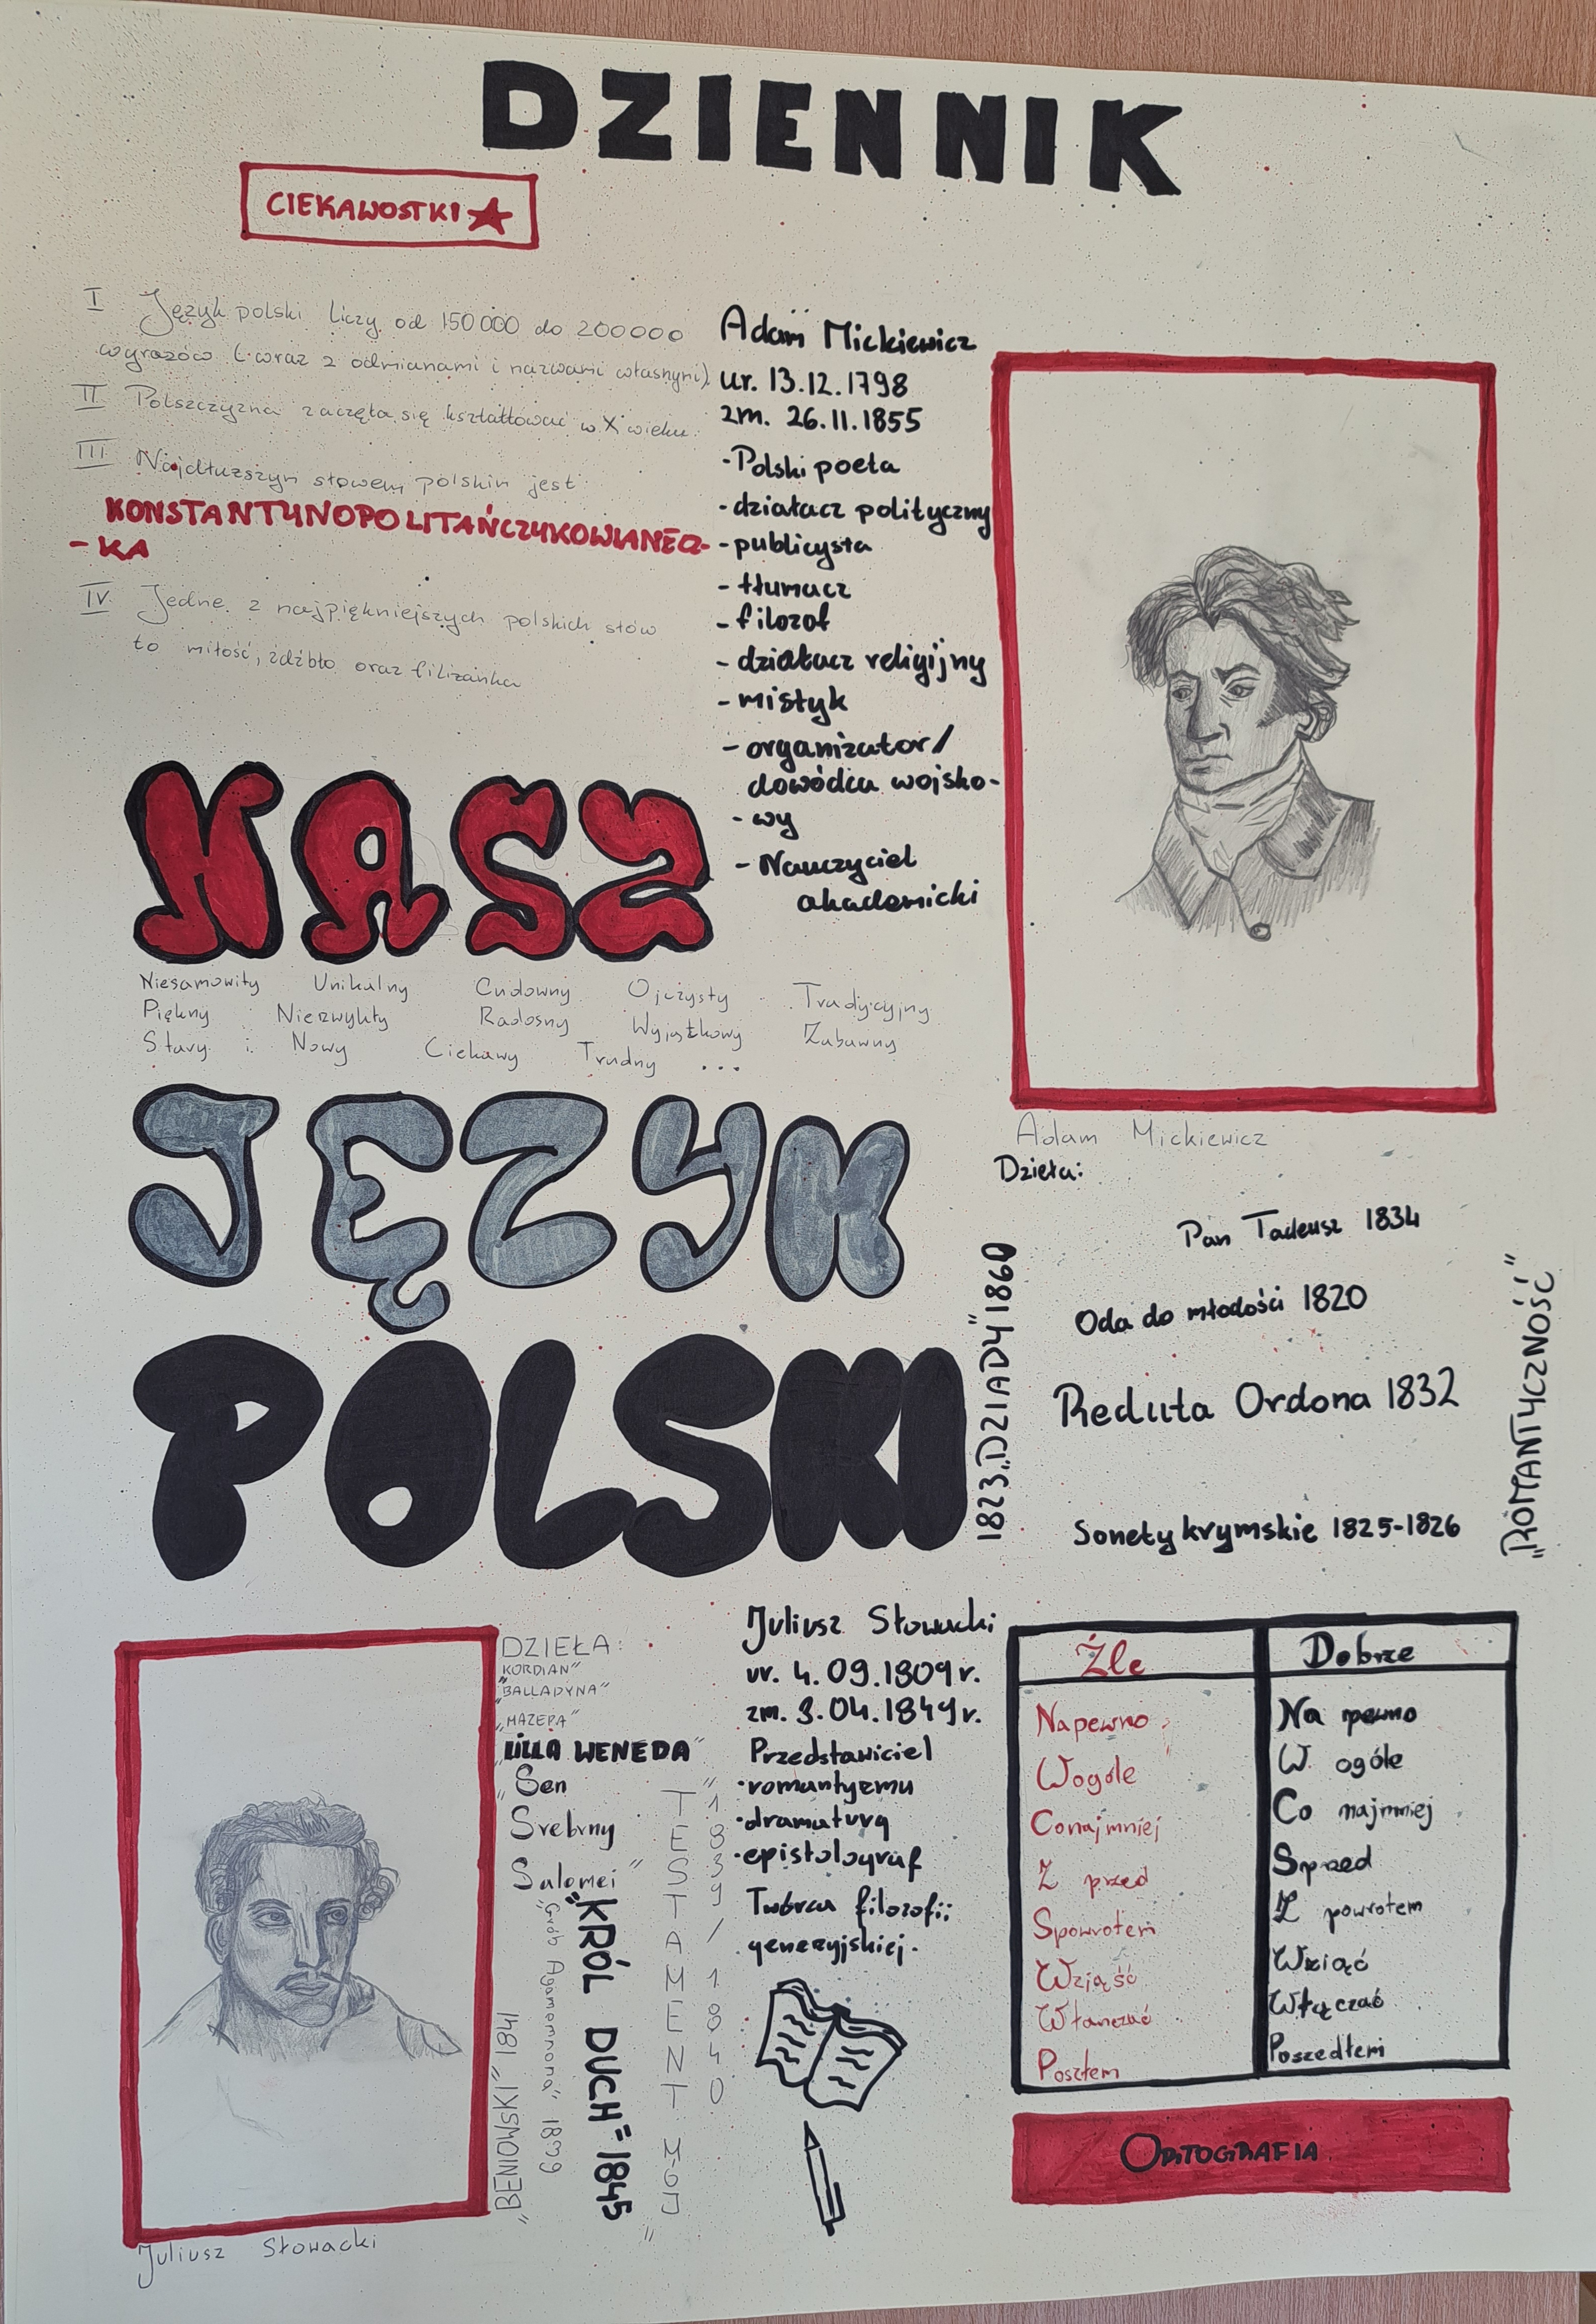 DZIENNIK
CIEKAWOSTKI
I Język polski liczy od 150 000 do 200000
wyrazów (wraz z odmianami i nazwami własnymi)
II Polszczyzna zaczęła się kształtować w X wieku.
III Najdłuższym słowem polskim jest:
KONSTANTYNOPOLITAŃCZYKOWIANECZ-
-KA
IV. Jedne z najpiękniejszych polskich słów
to miłość, źdźbło oraz filiżanka
Adam Mickiewicz
ur. 13.12.1798
zm. 26.11.1855
-Polski poeta
-działacz polityczny
-publicysta
-tłumacz
-filozof
-działacz religijny
-mistyk
-organizator/
dowódca wojsko-
-wy
-Nauczyciel
akademicki
NASZ
Niesamowity Unikalny Cudowny Ojczysty Tradycyjny
Piękny Niezwykły Radosny Wyjątkowy Zabawny
Stary i Nowy Ciekawy Trudny ...
JĘZYK
POLSKI
Adam Mickiewicz
Dzieła:
Pan Tadeusz 1834
Oda do młodości 1820
Reduta Ordona 1832
Sonety krymskie 1825-1826
1823 „DZIADY" 1860
„ROMANTYCZNOŚĆ"
Juliusz Słowacki
DZIEŁA:
„KORDIAN"
„BALLADYNA"
„MAZEPA"
„LILLA WENEDA"
„Sen
Srebrny
Salomei"
„BENIOWSKI" 1841
„Grób Agamemnona" 1839
„KRÓL DUCH" 1845
„TESTAMENT MÓJ"
1839/1840
Juliusz Słowacki
ur. 4.09.1809r.
zm. 3.04.1849r.
Przedstawiciel
·romantyzmu
·dramaturg
·epistolograf
Twórca filozofii
genezyjskiej.
Źle Dobrze
Napewno Na pewno
Wogóle W ogóle
Conajmniej Co najmniej
Z przed Sprzed
Spowrotem Z powrotem
Wziąść Wziąć
Włanczać Włączać
Poszłem Poszedłem
ORTOGRAFIA